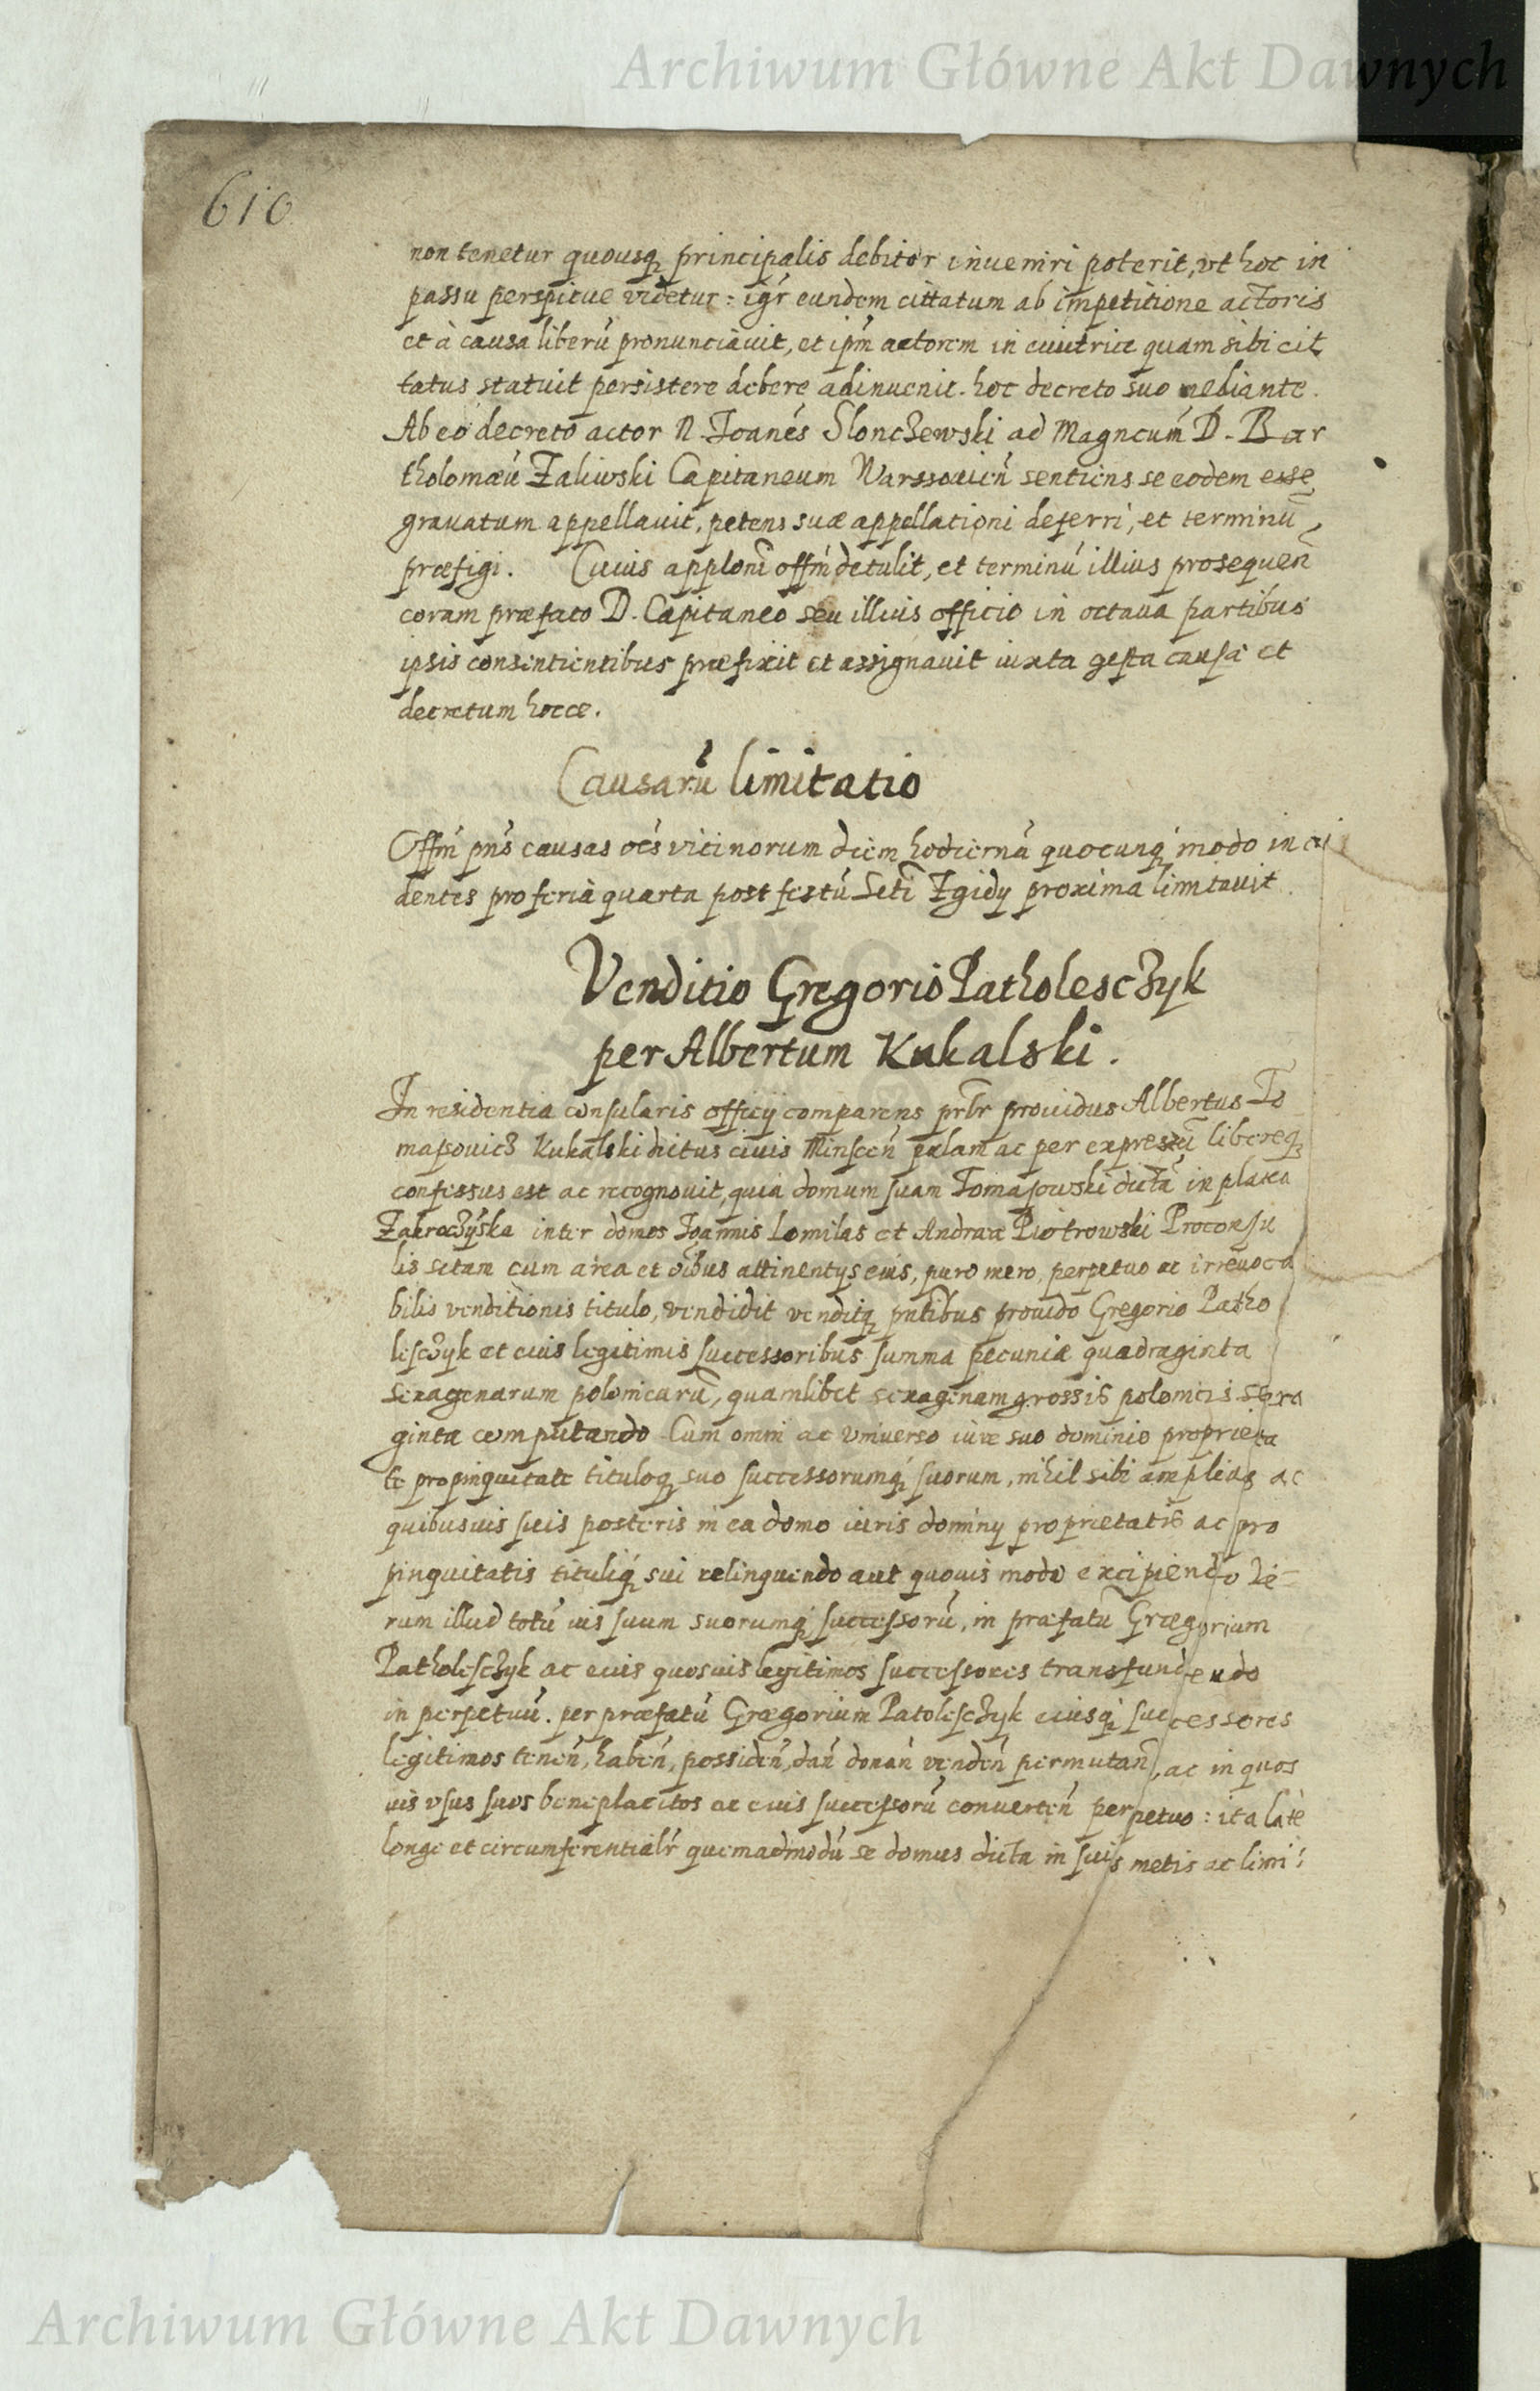 Archiwum Główne Akt Dawnych
610
non tenetur quousq̃ principalis debitor inueniri poterit, vt hoc in
passu perspicue videtur: igr̃ eundem cittatum ab impetitione actoris
et à causa liberũ pronunciauit, et ipm̃ actorem in euictrice quam sibi cit
tatus statuit persistere debere adinuenit. hoc decreto suo mediante.
Ab eo decreto actor N. Joanẽs Slonczewski ad Magncum̃ D. Bar
tholomæũ Zaliwski Capitaneum Warssouieñ sentiens se eodem esse
grauatum appellauit, petens suæ appellationi deferri, et terminũ
præfigi. Cuius apploni offm̃ detulit, et terminũ illius prosequeñ
coram præfato D. Capitaneo seu illius officio in octaua partibus
ipsis consentientibus præfixit et assignauit iuxta gesta causæ et
decretum hocce.
Causarũ limitatio
Offm̃ pñs causas oẽs vicinorum diem hodiernã quocunq̃ modo in ci
dentes pro feria quarta post festũ Scti Egidy proxima limitauit.
Venditio Gregorio Patholesczyk
per Albertum Kukalski.
In residentia consularis officij comparens prbr̃ prouidus Albertus To
maßouicz Kukalski dictus ciuis Minsceñ palam ac per expressũ libereq̃
confessus est ac recognouit, quia domum suam Tomaßowski dictã in platea
Zakroczÿska inter domos Joannis Lomilas et Andreæ Piotrowski Proconsu
lis sitam cum area et oĩbus attinentys eius, puro mero, perpetuo ac irreuoca
bilis venditionis titulo, vendidit venditq̃ pñtibus prouido Gregorio Patho
lesczyk et eius legitimis successoribus summa pecuniæ quadraginta
sexagenarum polonicarũ, quamlibet sexagenam grossis polonicis sexa
ginta computando Cum omni ac vniuerso iure suo dominio proprieta
te propinquitate tituloq̃ suo successorumq̃ suorum, nihil sibi amplius ac
quibusuis suis posteris in ea domo iuris dominy proprietatis ac pro
pinquitatis tituliq̃ sui relinquendo aut quouis modo excipiendo Ve=
rum illud totũ ius suum suorumq̃ successorũ, in præfatũ Grægorium
Patholesczyk ac eius quosuis legitimos successores transfundendo
in perpetuũ. per præfatũ Grægorium Patolesczyk eiusq̃ successores
legitimos teneñ, habeñ, possideñ, dañ donañ vendeñ permutañ, ac in quos
uis vsus suos beneplacitos ac eius successorũ conuerteñ perpetuo: ita latè
longe et circumferentialr̃ quemadmodũ se domus dicta in suis metis ac limi:
Archiwum Główne Akt Dawnych